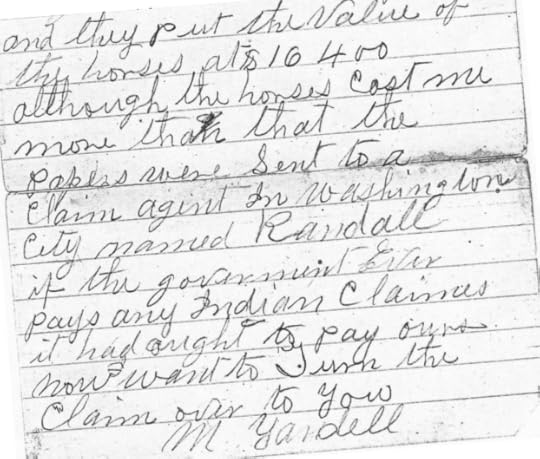 and they put the Value of
the horses at $ 16 400
although the horses Cost me
more than that the
papers were Sent to a
Claim agent In Washington
City named Randall
if the goverment Ever
pays any Indian Claimes
it had ought to pay ours
now want to Turn the
Claim over to You
M Yandell